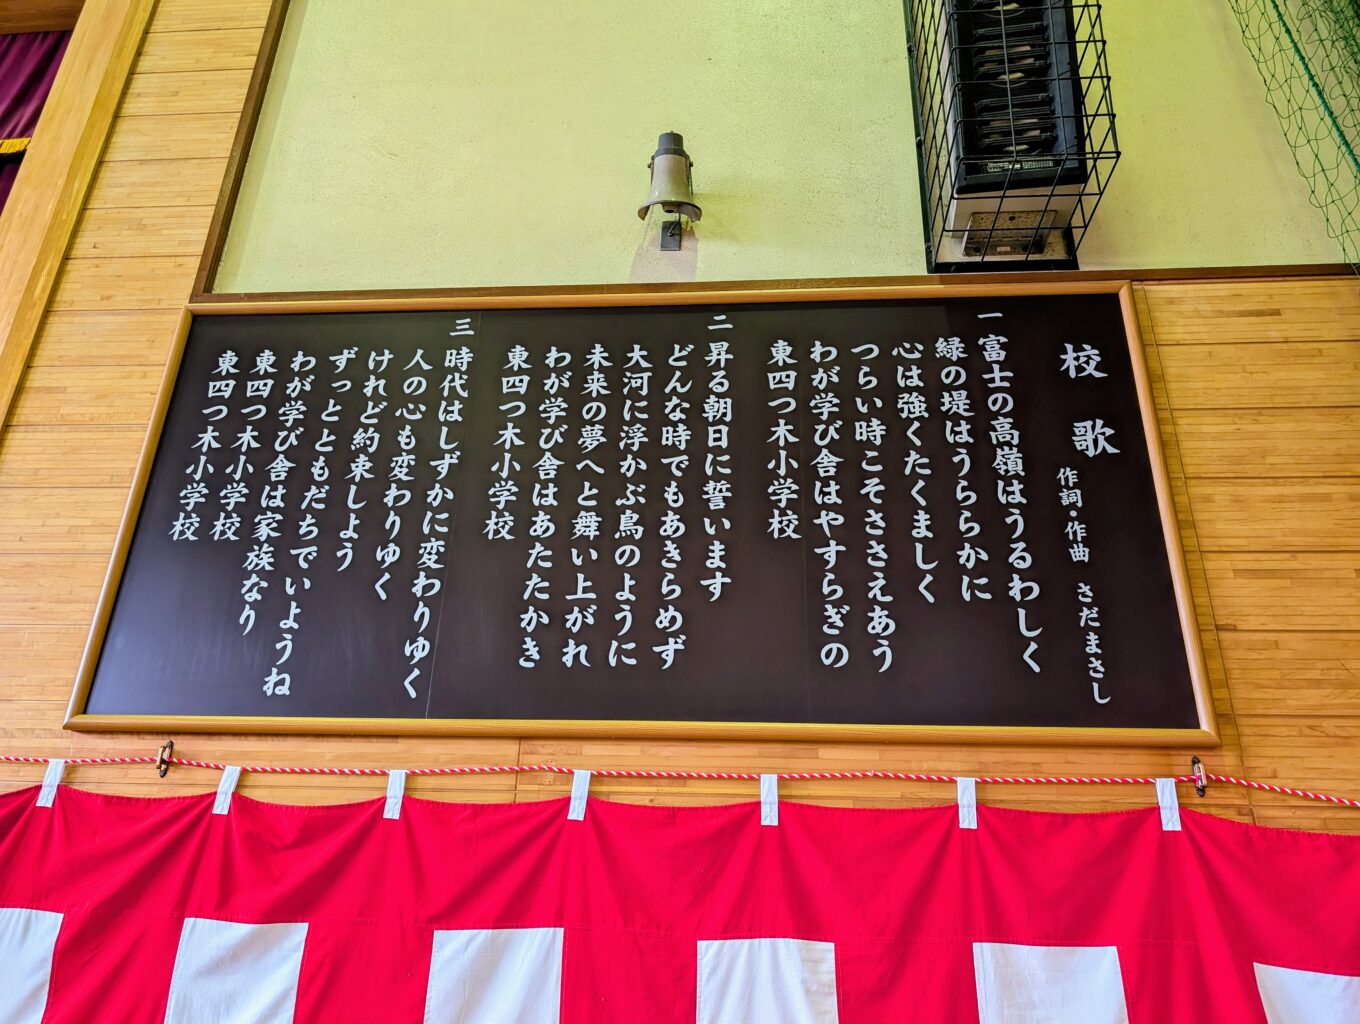 校歌
作詞・作曲 さだまさし
一 富士の高嶺はうるわしく
緑の堤はうららかに
心は強くたくましく
つらい時こそささえあう
わが学び舎はやすらぎの
東四つ木小学校
二 昇る朝日に誓います
どんな時でもあきらめず
大河に浮かぶ鳥のように
未来の夢へと舞い上がれ
わが学び舎はあたたかき
東四つ木小学校
三 時代はしずかに変わりゆく
人の心も変わりゆく
けれど約束しよう
ずっとともだちでいようね
わが学び舎は家族なり
東四つ木小学校
東四つ木小学校